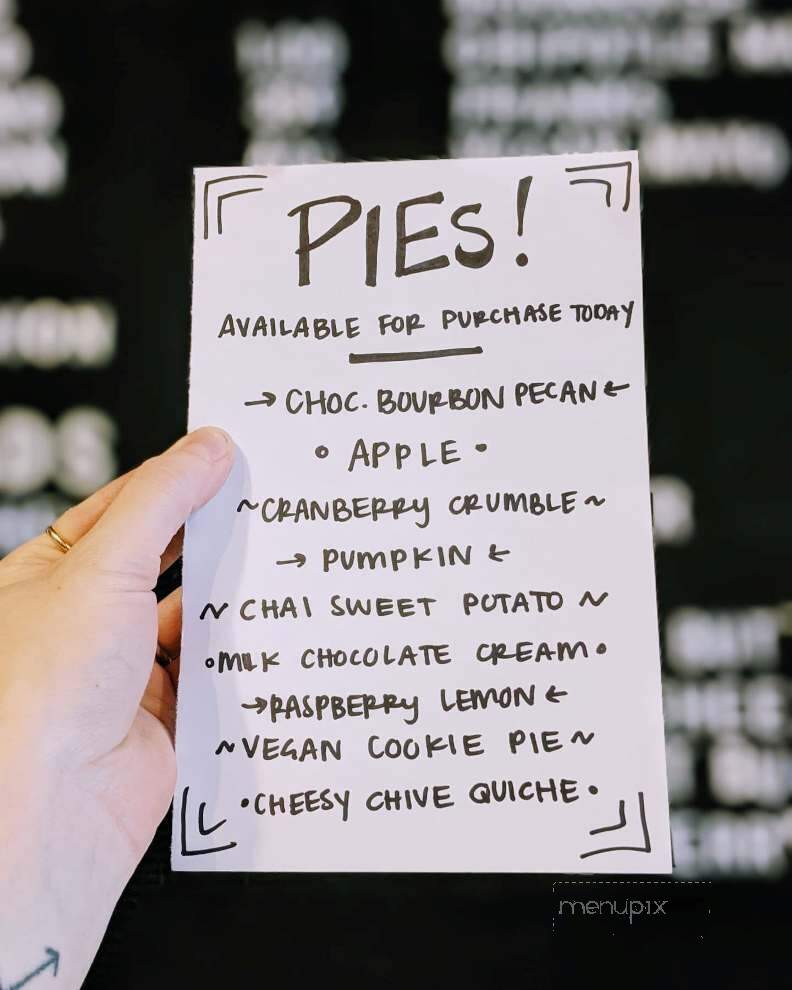 PIES!
AVAILABLE FOR PURCHASE TODAY
→ CHOC. BOURBON PECAN ←
• APPLE •
~ CRANBERRY CRUMBLE ~
→ PUMPKIN ←
~ CHAI SWEET POTATO ~
• MILK CHOCOLATE CREAM •
→ RASPBERRY LEMON ←
~ VEGAN COOKIE PIE ~
• CHEESY CHIVE QUICHE •
menupix